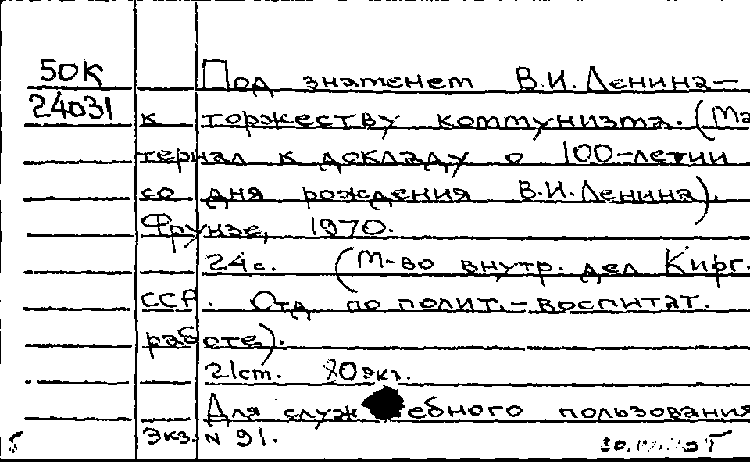 50К Под знаменем В.И. Ленина—
24031 к торжеству коммунизма. (Ма
териал к докладу о 100-летии
со дня рождения В.И. Ленина).
Фрунзе, 1970.
24с. (М-во внутр. дел Кирг.
ССР. Отд по полит.-воспитат.
работе).
21см. 80экз.
Для служебного пользования
Экз. N 91.